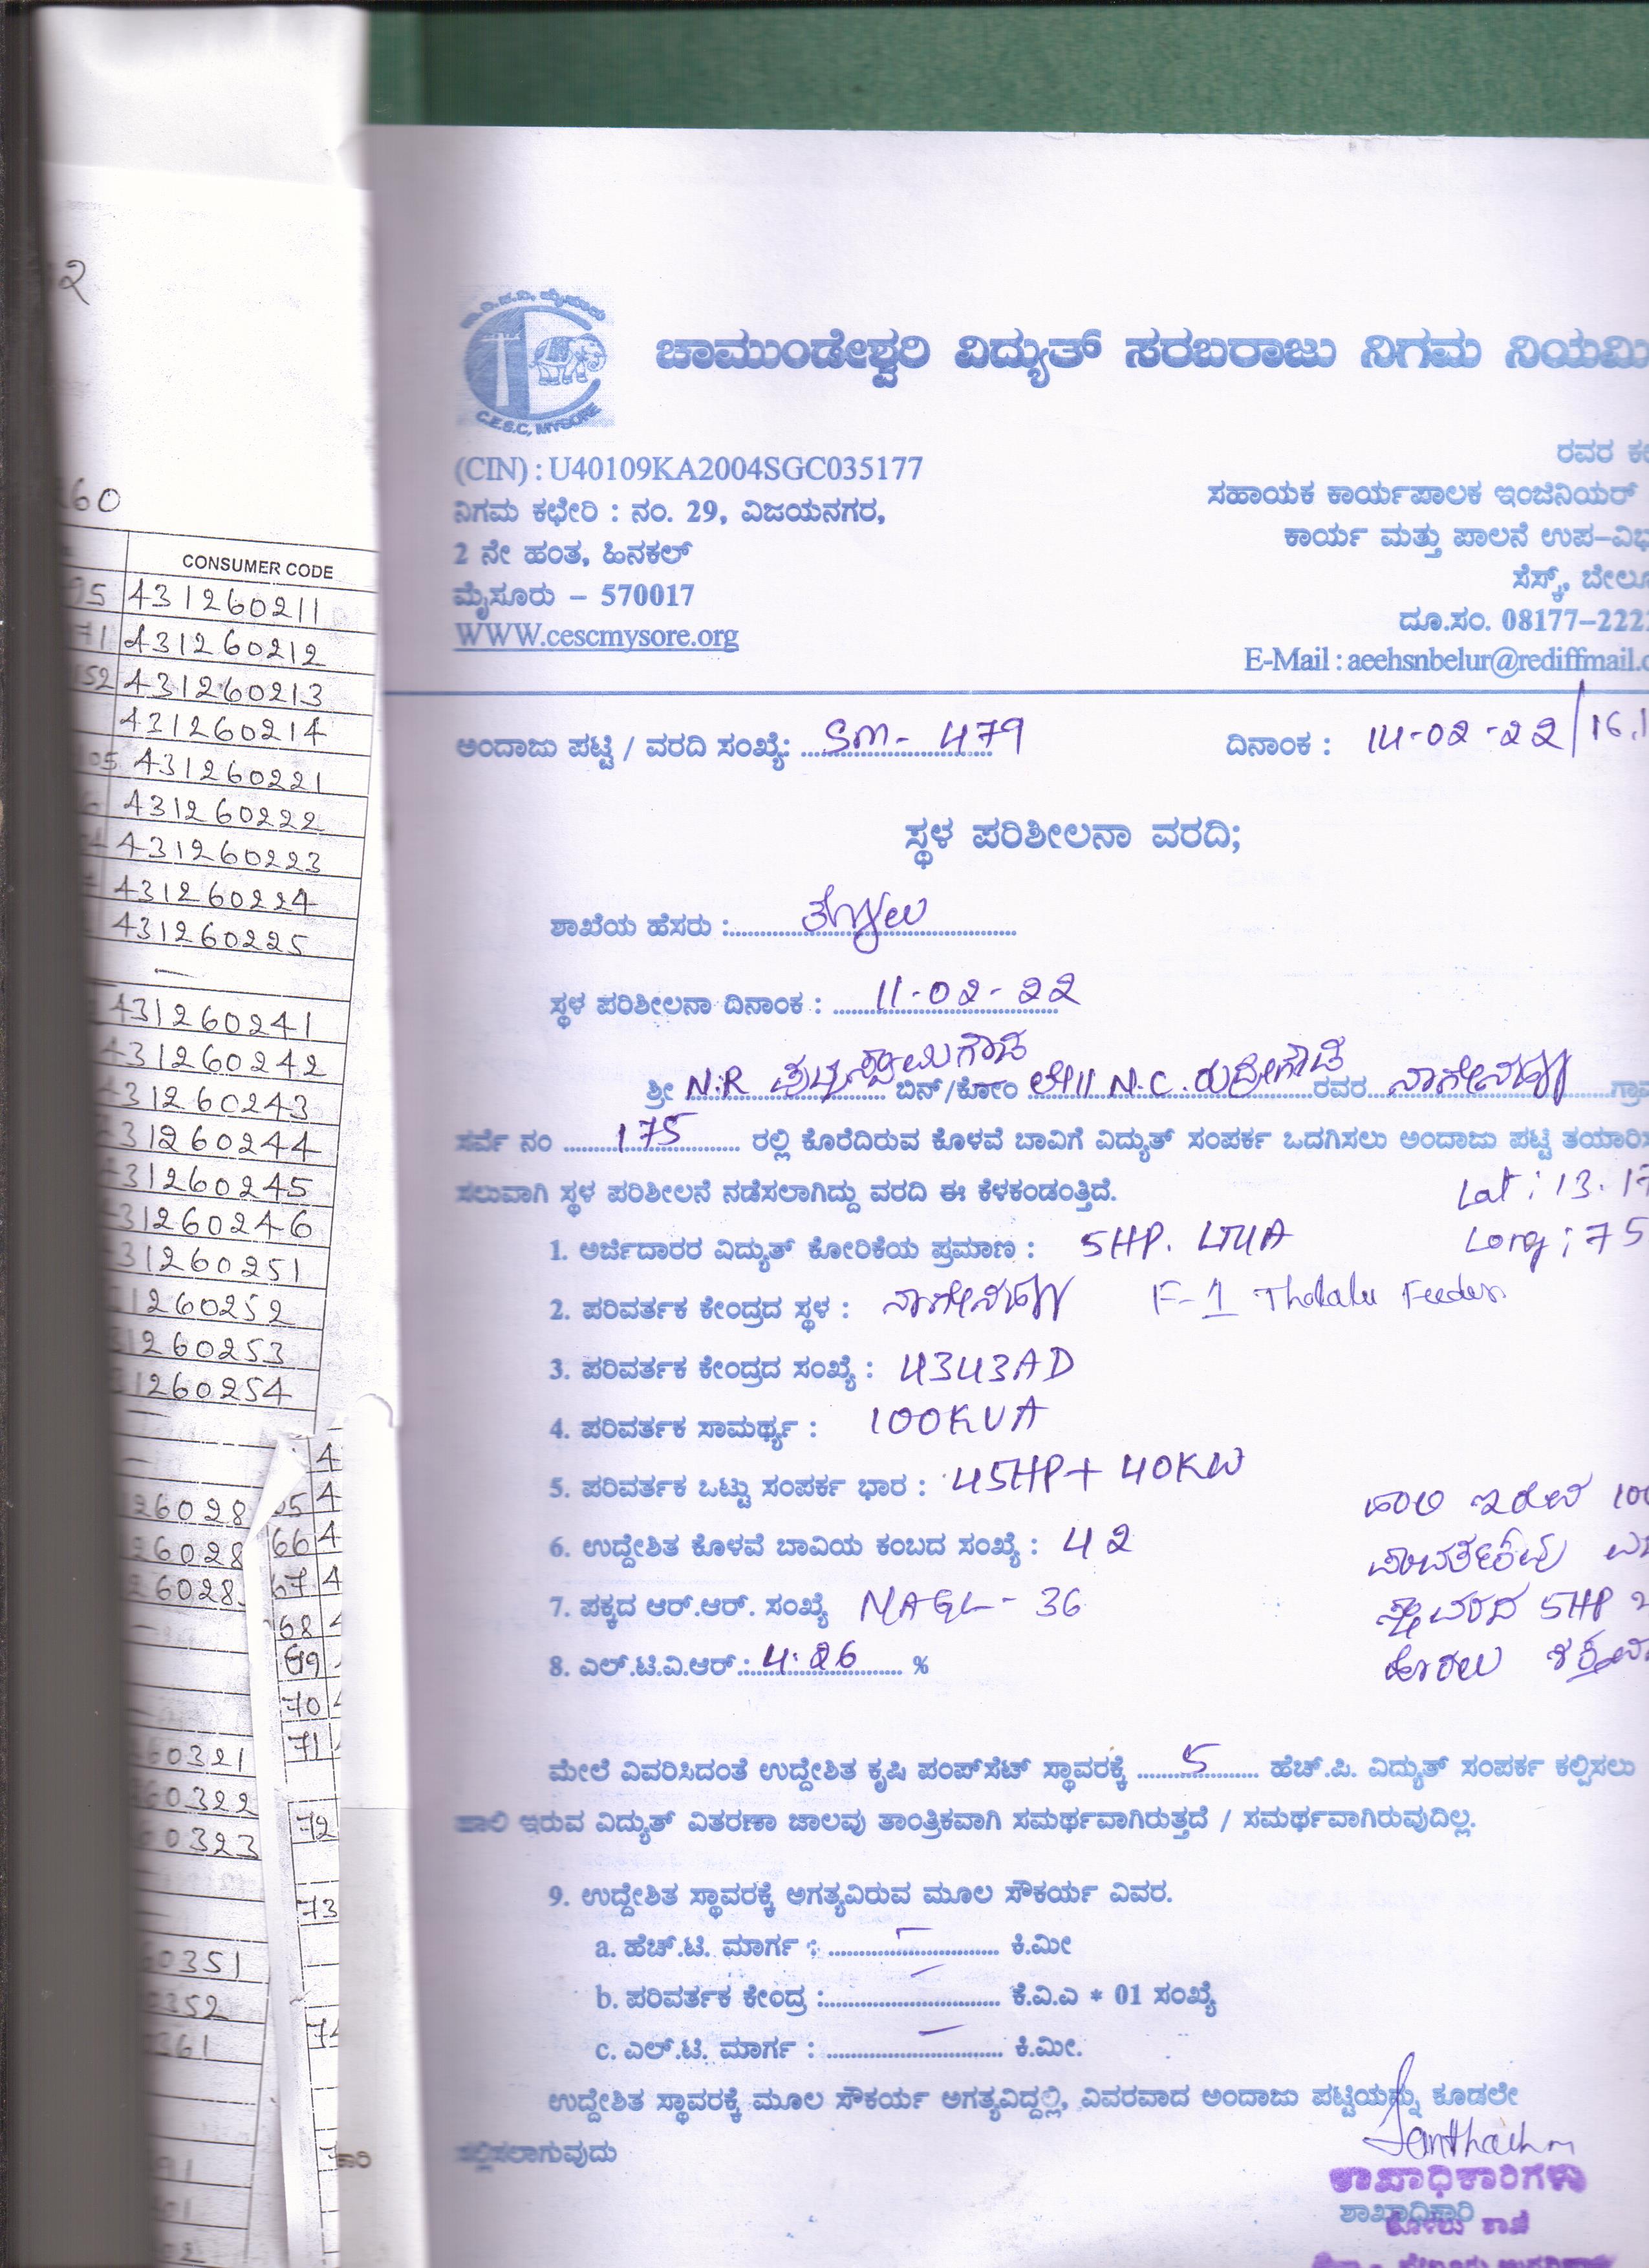 2
60
CONSUMER CODE
95 431260211
71 431260212
152 431260213
431260214
105 431260221
431260222
431260223
431260224
431260225
431260241
431260242
431260243
31260244
31260245
31260246
31260251
1260252
1260253
1260254
4
26028 65 4
26028 66 4
26028 67 4
68
69
70
71
60321
60322
60323
72
73
60351
0352
361
ಕಾರಿ
ಚಾ.ವಿ.ಸ.ನಿ. ಮೈಸೂರು
C.E.S.C, MYSORE
ಚಾಮುಂಡೇಶ್ವರಿ ವಿದ್ಯುತ್ ಸರಬರಾಜು ನಿಗಮ ನಿಯಮಿ
(CIN) : U40109KA2004SGC035177
ನಿಗಮ ಕಛೇರಿ : ನಂ. 29, ವಿಜಯನಗರ,
2 ನೇ ಹಂತ, ಹಿನಕಲ್
ಮೈಸೂರು – 570017
WWW.cescmysore.org
ರವರ ಕ
ಸಹಾಯಕ ಕಾರ್ಯಪಾಲಕ ಇಂಜಿನಿಯರ್
ಕಾರ್ಯ ಮತ್ತು ಪಾಲನೆ ಉಪ–ವಿಭ
ಸೆಸ್ಕ್, ಬೇಲೂ
ದೂ.ಸಂ. 08177–222
E-Mail : aeehsnbelur@rediffmail.c
ಅಂದಾಜು ಪಟ್ಟಿ / ವರದಿ ಸಂಖ್ಯೆ: SM- 479 ದಿನಾಂಕ : 14-02-22/16.1
ಸ್ಥಳ ಪರಿಶೀಲನಾ ವರದಿ;
ಶಾಖೆಯ ಹೆಸರು : ತೊಳಲು
ಸ್ಥಳ ಪರಿಶೀಲನಾ ದಿನಾಂಕ : 11-02-22
ಶ್ರೀ N.R ಪುಟ್ಟಸ್ವಾಮಿಗೌಡ ಬಿನ್/ಕೋಂ ಲೇ॥ N.C. ರುದ್ರೇಗೌಡ ರವರ ನಾಗೇನಹಳ್ಳಿ ಗ್ರಾ
ಸರ್ವೆ ನಂ 175 ರಲ್ಲಿ ಕೊರೆದಿರುವ ಕೊಳವೆ ಬಾವಿಗೆ ವಿದ್ಯುತ್ ಸಂಪರ್ಕ ಒದಗಿಸಲು ಅಂದಾಜು ಪಟ್ಟಿ ತಯಾರಿಸ
ಸಲುವಾಗಿ ಸ್ಥಳ ಪರಿಶೀಲನೆ ನಡೆಸಲಾಗಿದ್ದು ವರದಿ ಈ ಕೆಳಕಂಡಂತ್ತಿದೆ. Lat : 13.17
1. ಅರ್ಜಿದಾರರ ವಿದ್ಯುತ್ ಕೋರಿಕೆಯ ಪ್ರಮಾಣ : 5HP. LT4A Long : 75
2. ಪರಿವರ್ತಕ ಕೇಂದ್ರದ ಸ್ಥಳ : ನಾಗೇನಹಳ್ಳಿ F-1 Thalalu Feeder
3. ಪರಿವರ್ತಕ ಕೇಂದ್ರದ ಸಂಖ್ಯೆ : 4343AD
4. ಪರಿವರ್ತಕ ಸಾಮರ್ಥ್ಯ : 100KVA
5. ಪರಿವರ್ತಕ ಒಟ್ಟು ಸಂಪರ್ಕ ಭಾರ : 45HP+ 40KW
ಹಾಲಿ ಇರುವ 100
6. ಉದ್ದೇಶಿತ ಕೊಳವೆ ಬಾವಿಯ ಕಂಬದ ಸಂಖ್ಯೆ : 42
ಪರಿವರ್ತಕವು
7. ಪಕ್ಕದ ಆರ್.ಆರ್. ಸಂಖ್ಯೆ NAGL- 36
ಸ್ಥಾವರದ 5HP
8. ಎಲ್.ಟಿ.ವಿ.ಆರ್ : 4.26 %
ಮೇಲೆ ವಿವರಿಸಿದಂತೆ ಉದ್ದೇಶಿತ ಕೃಷಿ ಪಂಪ್‌ಸೆಟ್ ಸ್ಥಾವರಕ್ಕೆ 5 ಹೆಚ್.ಪಿ. ವಿದ್ಯುತ್ ಸಂಪರ್ಕ ಕಲ್ಪಿಸಲು
ಹಾಲಿ ಇರುವ ವಿದ್ಯುತ್ ವಿತರಣಾ ಜಾಲವು ತಾಂತ್ರಿಕವಾಗಿ ಸಮರ್ಥವಾಗಿರುತ್ತದೆ / ಸಮರ್ಥವಾಗಿರುವುದಿಲ್ಲ.
9. ಉದ್ದೇಶಿತ ಸ್ಥಾವರಕ್ಕೆ ಅಗತ್ಯವಿರುವ ಮೂಲ ಸೌಕರ್ಯ ವಿವರ.
a. ಹೆಚ್.ಟಿ. ಮಾರ್ಗ : – ಕಿ.ಮೀ
b. ಪರಿವರ್ತಕ ಕೇಂದ್ರ : – ಕೆ.ವಿ.ಎ * 01 ಸಂಖ್ಯೆ
c. ಎಲ್.ಟಿ. ಮಾರ್ಗ : – ಕಿ.ಮೀ.
ಉದ್ದೇಶಿತ ಸ್ಥಾವರಕ್ಕೆ ಮೂಲ ಸೌಕರ್ಯ ಅಗತ್ಯವಿದ್ದಲ್ಲಿ, ವಿವರವಾದ ಅಂದಾಜು ಪಟ್ಟಿಯನ್ನು ಕೂಡಲೇ
ಸಲ್ಲಿಸಲಾಗುವುದು
ಶಾಖಾಧಿಕಾರಿಗಳು
ಶಾಖಾಧಿಕಾರಿ
ತೊಳಲು ಶಾಖೆ